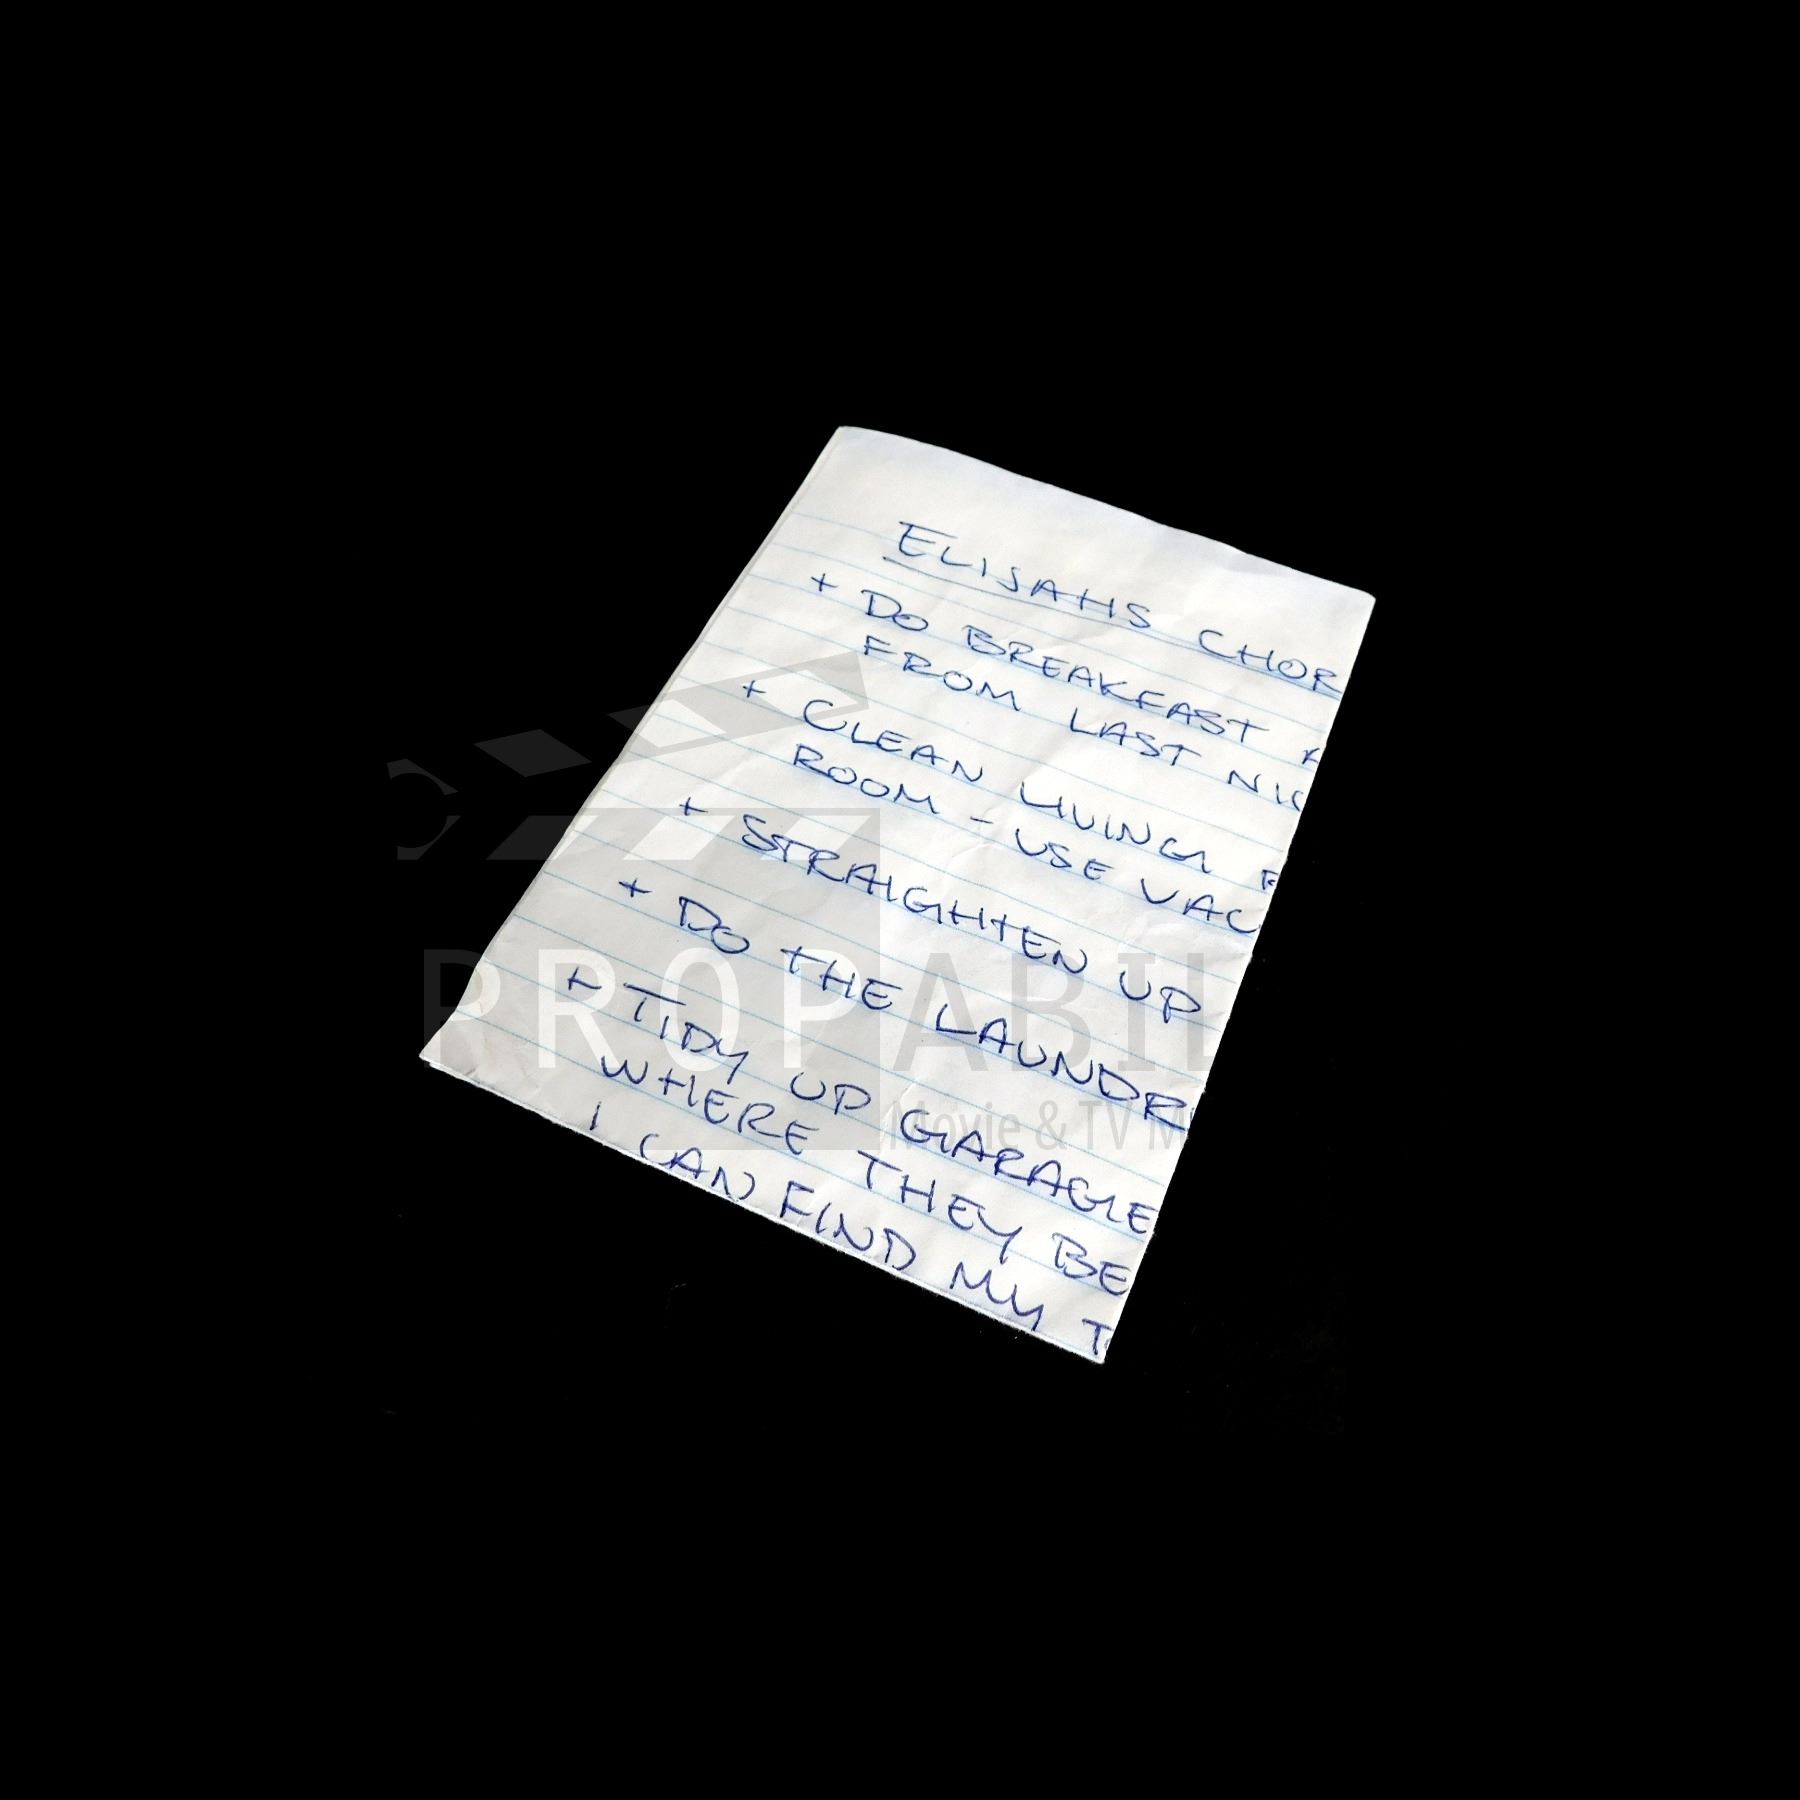 ELISAHS CHOR
+ DO BREAKFAST
FROM LAST NIG
+ CLEAN LIVING
ROOM - USE VAC
+ STRAIGHTEN UP
+ DO THE LAUNDR
+ TIDY UP GARAGE
WHERE THEY BE
I CAN FIND MY TO
PROPABIL
Movie & TV M